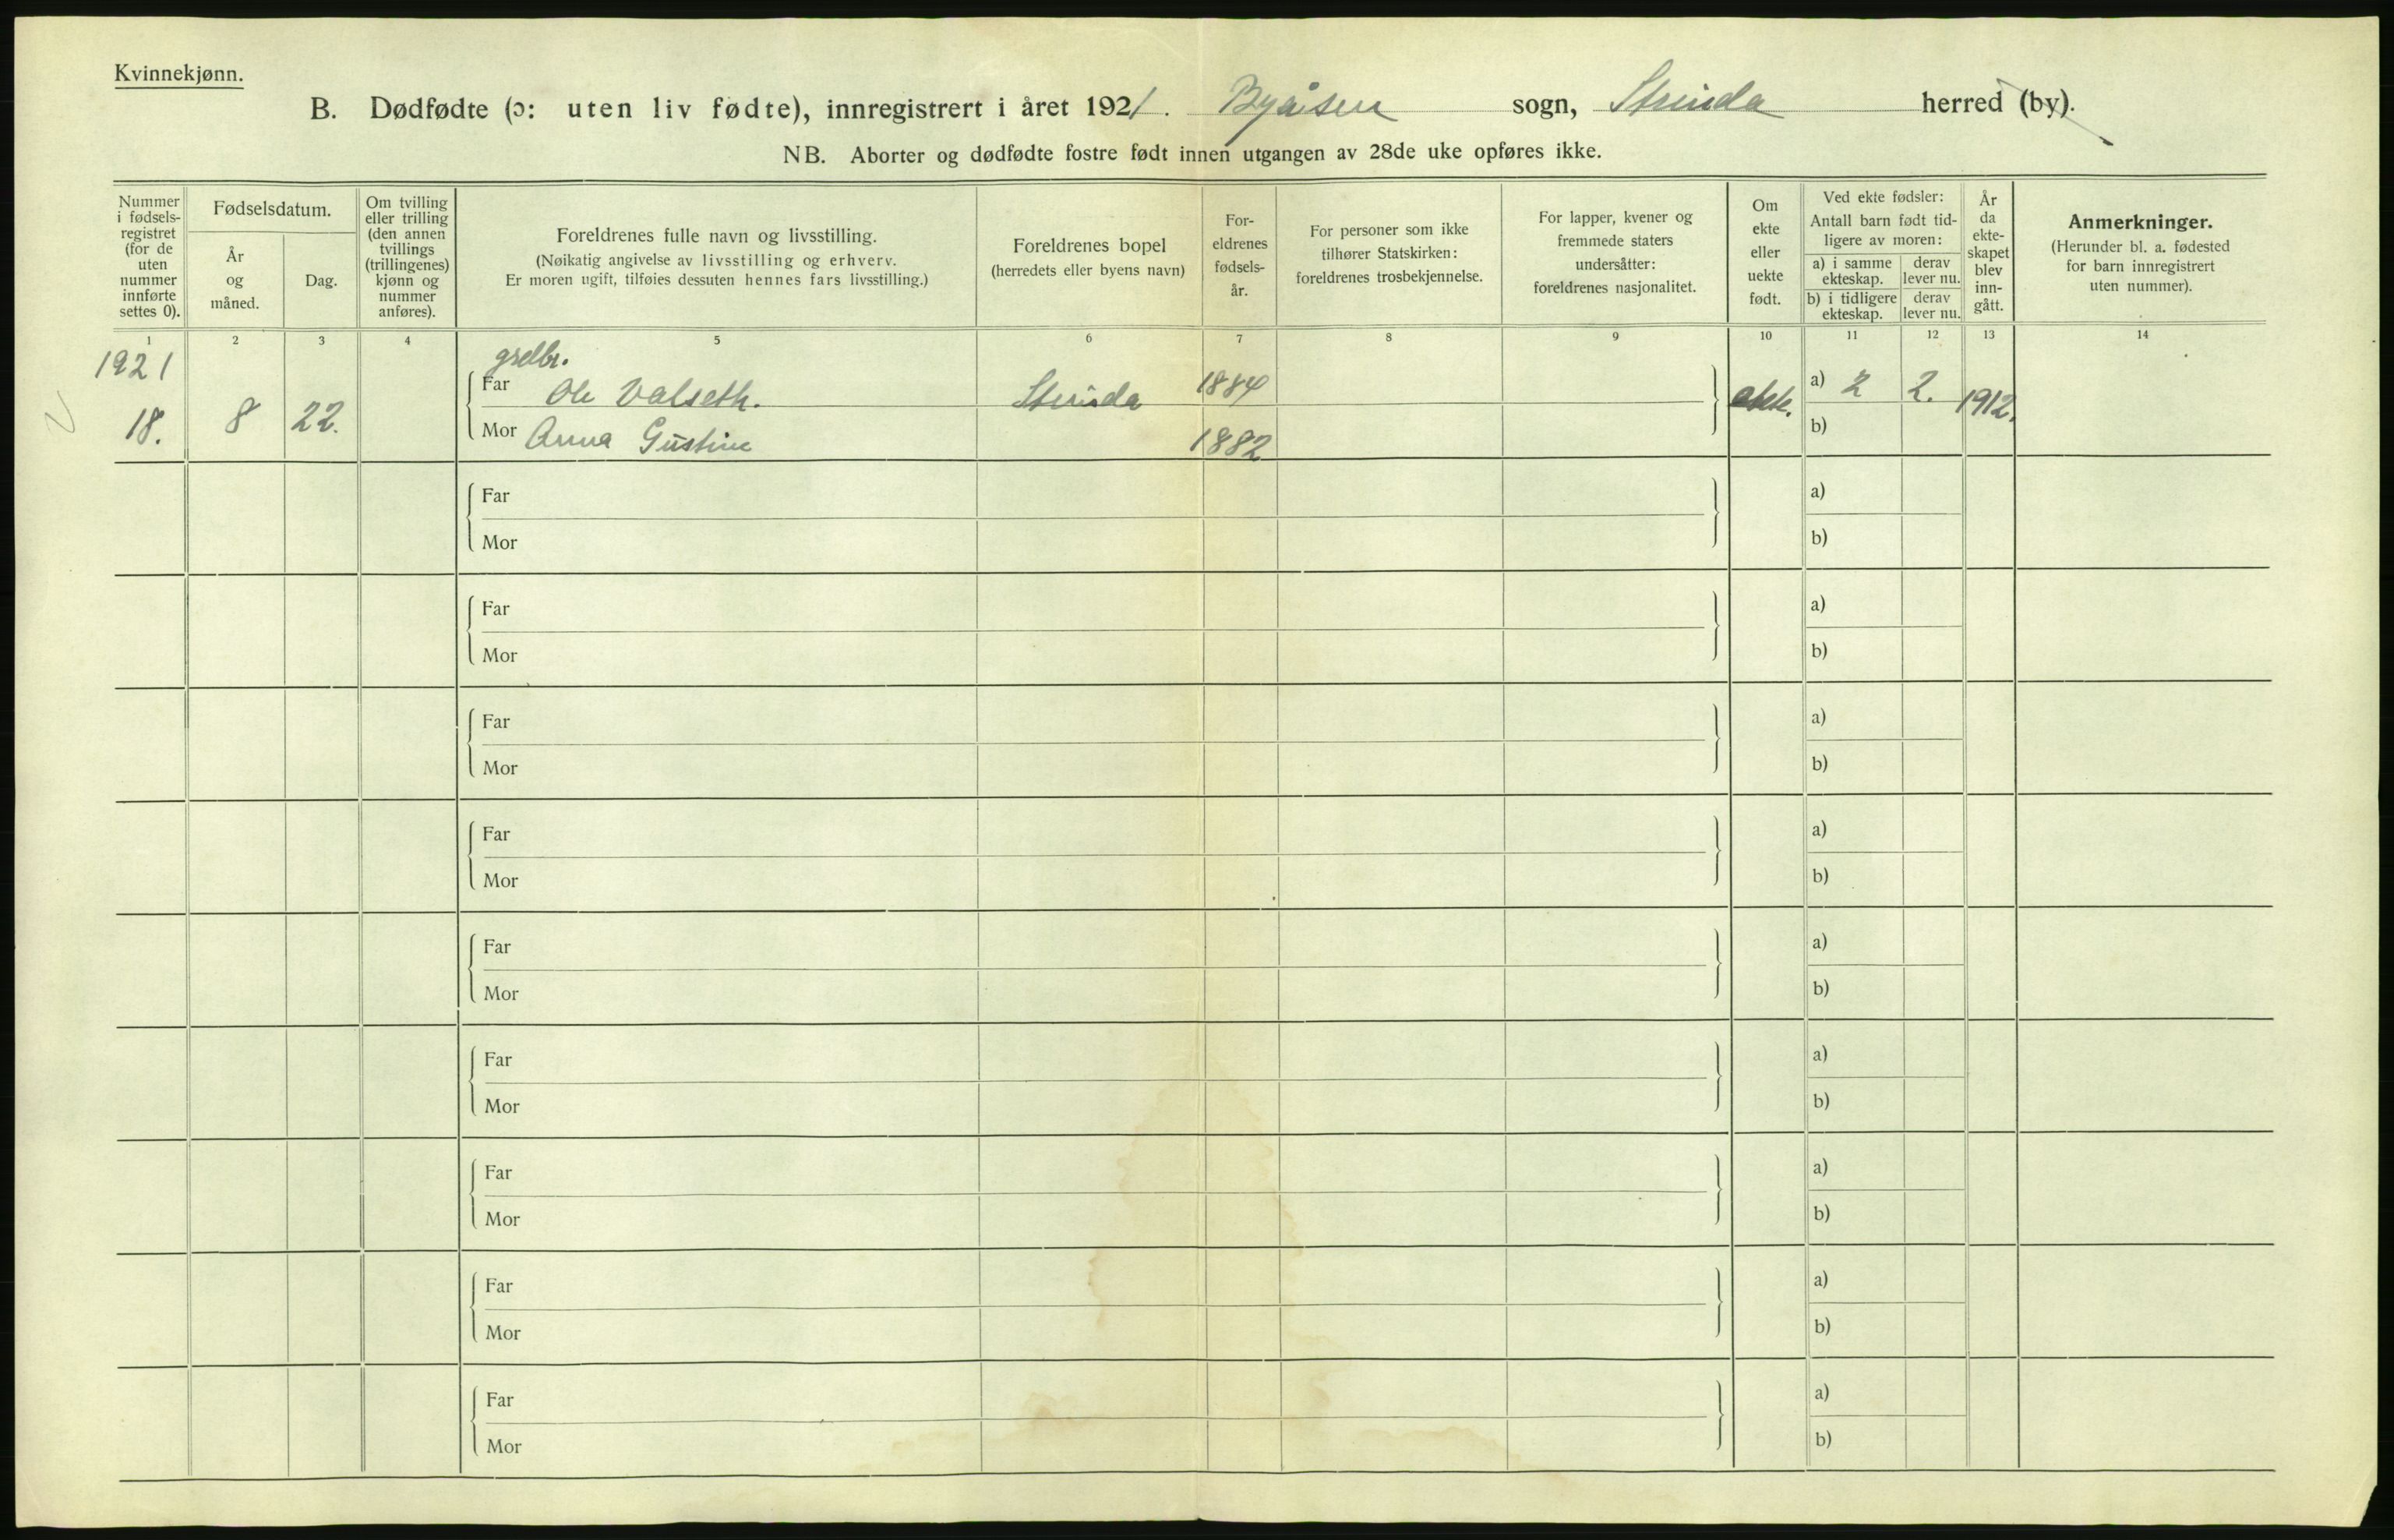 Kvinnekjønn.
B. Dødfødte (ɔ: uten liv fødte), innregistrert i året 1921. Byåsen sogn, Strinda herred (by).
NB. Aborter og dødfødte fostre født innen utgangen av 28de uke opføres ikke.
Nummer
i fødsels-
registret
(for de
uten
nummer
innførte
settes 0).
Fødselsdatum.
År
og
måned.
Dag.
Om tvilling
eller trilling
(den annen
tvillings
(trillingenes)
kjønn og
nummer
anføres).
Foreldrenes fulle navn og livsstilling.
(Nøikatig angivelse av livsstilling og erhverv.
Er moren ugift, tilføies dessuten hennes fars livsstilling.)
Foreldrenes bopel
(herredets eller byens navn)
For-
eldrenes
fødsels-
år.
For personer som ikke
tilhører Statskirken:
foreldrenes trosbekjennelse.
For lapper, kvener og
fremmede staters
undersåtter:
foreldrenes nasjonalitet.
Om
ekte
eller
uekte
født.
Ved ekte fødsler:
Antall barn født tid-
ligere av moren:
a) i samme
ekteskap.
derav
lever nu.
b) i tidligere
ekteskap.
derav
lever nu.
År
da
ekte-
skapet
blev
inn-
gått.
Anmerkninger.
(Herunder bl. a. fødested
for barn innregistrert
uten nummer).
1 2 3 4 5 6 7 8 9 10 11 12 13 14
1921
grdbr.
Far Ole Valseth. Strinda 1884 a) 2 2.
18. 8 22. ekte. 1912.
Mor Anna Gustine 1882 b)
Far a)
Mor b)
Far a)
Mor b)
Far a)
Mor b)
Far a)
Mor b)
Far a)
Mor b)
Far a)
Mor b)
Far a)
Mor b)
Far a)
Mor b)
Far a)
Mor b)